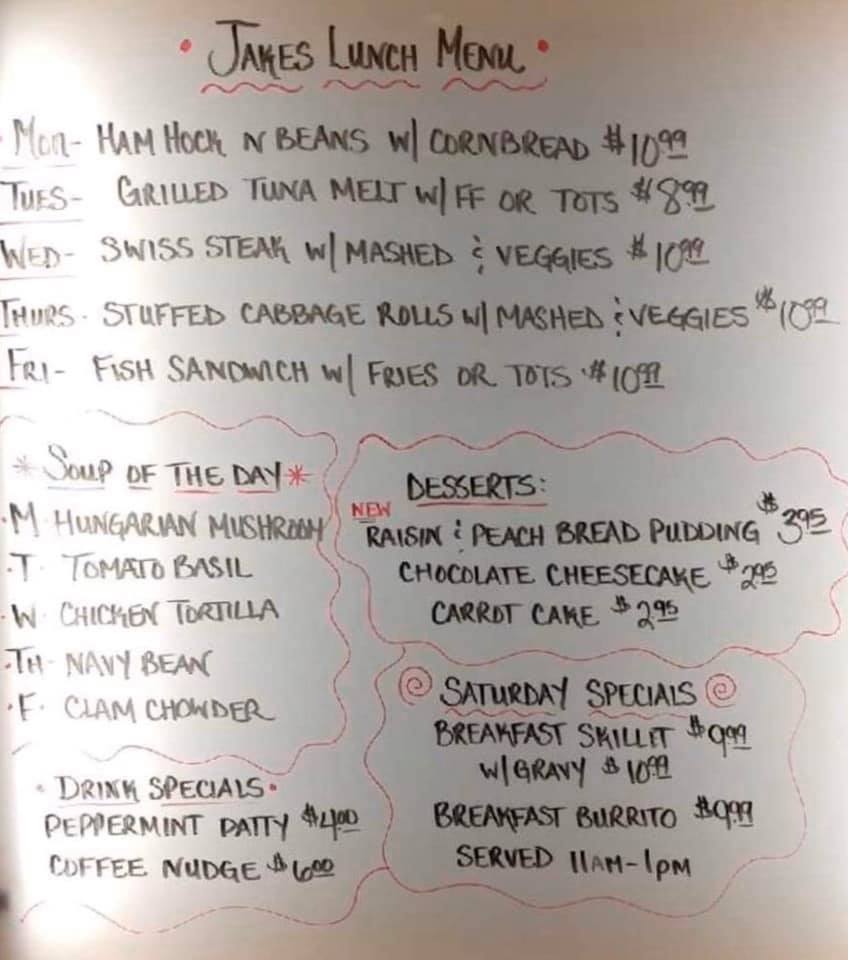 • JAKES LUNCH MENU •
• MON- HAM HOCK N BEANS W/ CORNBREAD $10.99
TUES- GRILLED TUNA MELT W/ FF OR TOTS $8.99
WED- SWISS STEAK W/ MASHED & VEGGIES $10.99
THURS- STUFFED CABBAGE ROLLS W/ MASHED & VEGGIES $10.99
FRI- FISH SANDWICH W/ FRIES OR TOTS $10.99
* SOUP OF THE DAY *
• M HUNGARIAN MUSHROOM
• T· TOMATO BASIL
• W· CHICKEN TORTILLA
• TH- NAVY BEAN
• F· CLAM CHOWDER
DESSERTS:
NEW
RAISIN & PEACH BREAD PUDDING $3.95
CHOCOLATE CHEESECAKE $2.95
CARROT CAKE $2.95
SATURDAY SPECIALS
BREAKFAST SKILLET $9.99
W/ GRAVY $10.99
BREAKFAST BURRITO $9.99
SERVED 11AM-1PM
• DRINK SPECIALS •
PEPPERMINT PATTY $4.00
COFFEE NUDGE $6.00